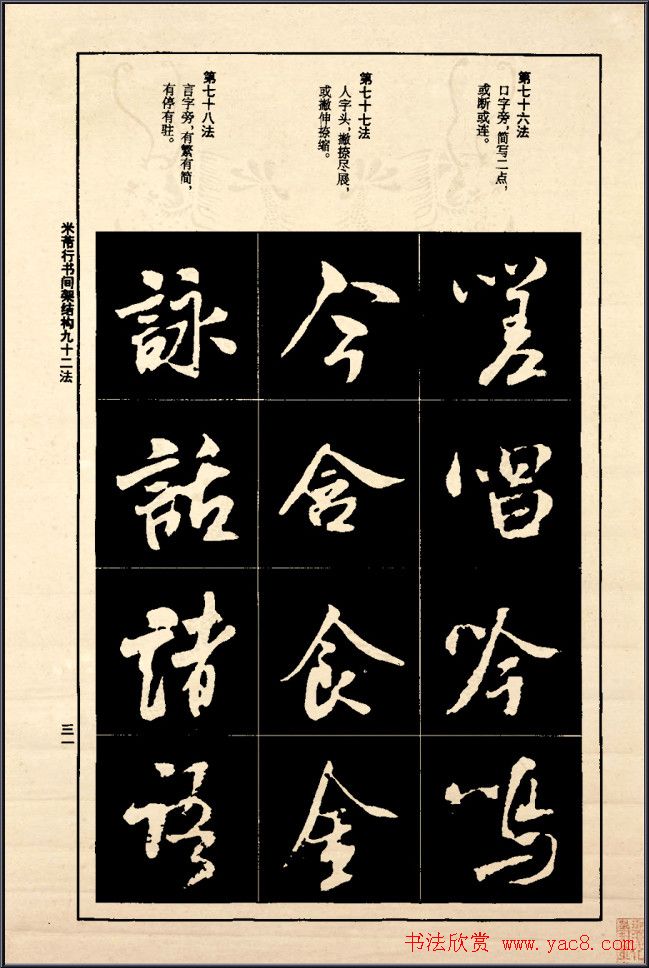 第七十六法
口字旁，简写二点，
或断或连。
第七十七法
人字头，撇捺尽展，
或撇伸捺缩。
第七十八法
言字旁，有繁有简，
有停有驻。
嗟唱吟鸣
今含食金
詠話諸語
米芾行书间架结构九十二法
三一
书法欣赏 www.yac8.com